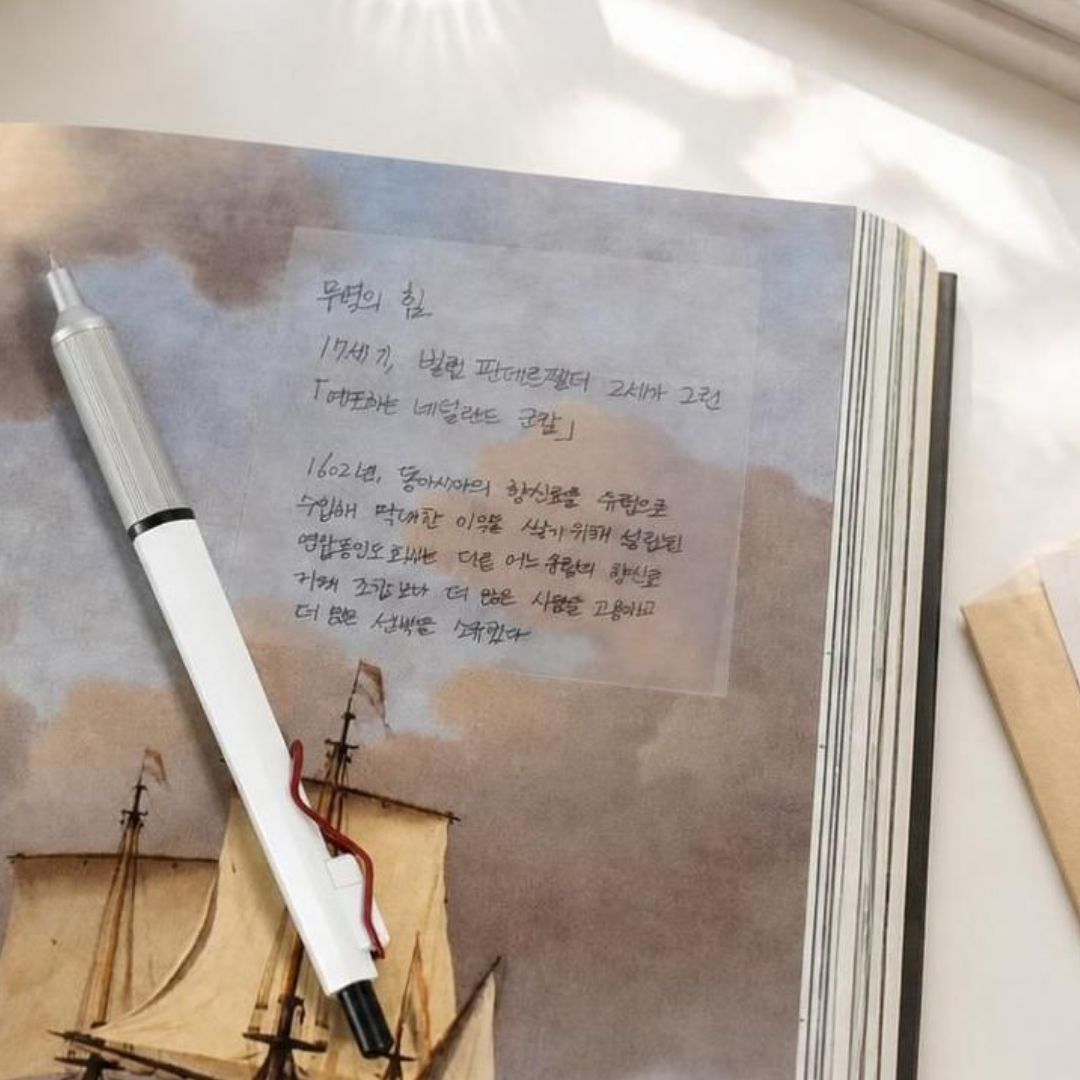 무역의 힘
17세기, 빌럼 판데르펠더 2세가 그린
「예포하는 네덜란드 군함」
1602년, 동아시아의 향신료를 유럽으로
수입해 막대한 이익을 쌓기 위해 설립된
연합동인도회사는 다른 어느 유럽의 향신료
거래 조합보다 더 많은 사람을 고용하고
더 많은 선박을 소유했다